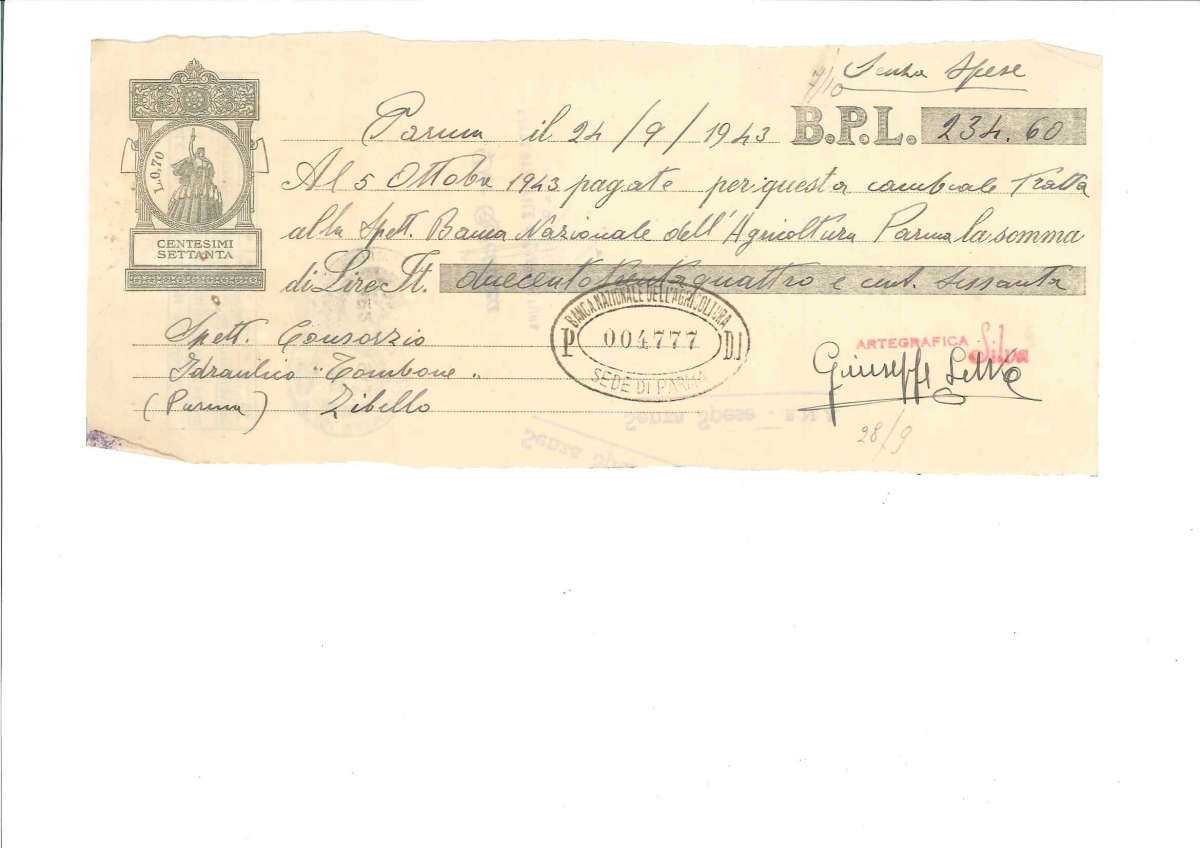 Senza Spese
Parma il 24/9/1943 B.P.L. 234.60
L.0,70
Al 5 Ottobre 1943 pagate per questa cambiale tratta
alla Spett. Banca Nazionale dell'Agricoltura Parma la somma
CENTESIMI
SETTANTA
di Lire It. duecentotrentaquattro e cent. sessanta
BANCA NAZIONALE DELL'AGRICOLTURA
P 004777 D.I
SEDE DI PARMA
Spett. Consorzio
Idraulico "Tombone"
(Parma) Zibello
ARTEGRAFICA Silva
Giuseppe Silva
28/9
Senza Spese